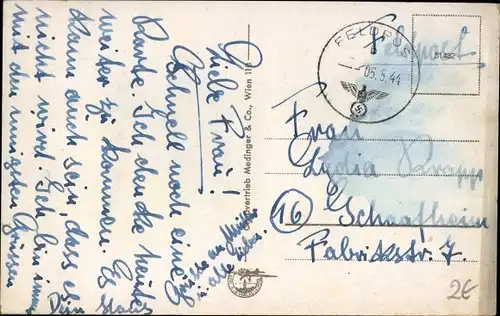 Liebe Frau!
Schnell noch eine
Karte. Ich denke heute
weiter zu kommen. Es
kann auch sein, dass es
nicht wird. Ich bin immer
mit den innigsten Grüssen
Dein
Grüsse an
u. alle Lieben.
vertrieb Medinger & Co., Wien 110
FELDPOST
05.5.44
Feldpost
Frau
Lydia Krapp
16 Schaafheim
Fabrikstr. 7.
2€